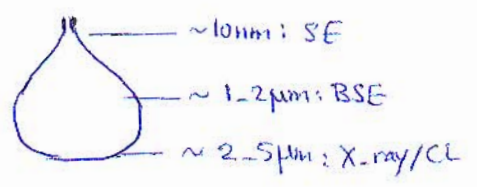 ~10nm: SE
~ 1_2µm: BSE
~ 2_5µm: X_ray/CL